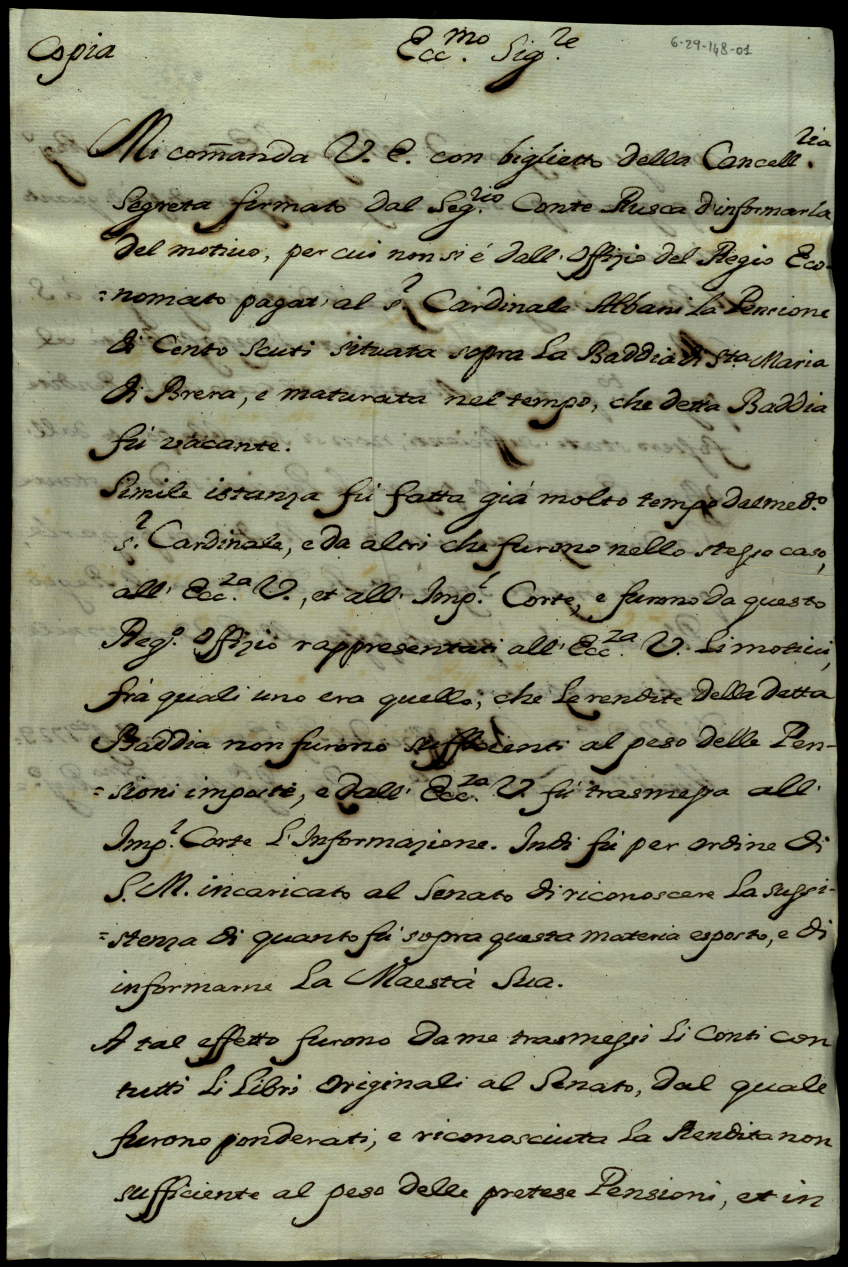 Copia
Ecc.mo Sig.re
6-29-148-01
Mi com̃anda V. E. con biglietto della Cancell.ria
Segreta firmato dal Seg.rio Conte Rusca d'informarla
del motivo, per cui non si é dall' Offizio del Regio Eco-
=nomato pagat' al s.r Cardinale Albani La Pensione
di Cento Scuti situata sopra La Baddia di Sta. Maria
di Brera, e maturata nel tempo, che detta Baddia
fú vacante.
Simile istanza fú fatta giá molto tempo dal med.o
s.r Cardinale, e da altri che furono nello stesso caso,
all' Ecc.za V., et all' Imp.l Corte, e furono da questo
Reg.o Offizio rappresentati all' Ecc.za V. Li motivi,
frá quali uno era quello, che Le rendite della detta
Baddia non furono sufficienti al peso delle Pen-
=sioni imposte, e dall' Ecc.za V. fú trasmessa all'
Imp.l Corte L'Informazione. Indi fú per ordine di
S. M. incaricato al Senato di riconoscere La sussi-
=stenza di quanto fú sopra questa materia esposto, e di
informarne La Maestá Sua.
A tal effetto furono da me trasmessi Li Conti con
tutti Li Libri Originali al Senato, dal quale
furono ponderati, e riconosciuta La Rendita non
sufficiente al peso delle pretese Pensioni, et in